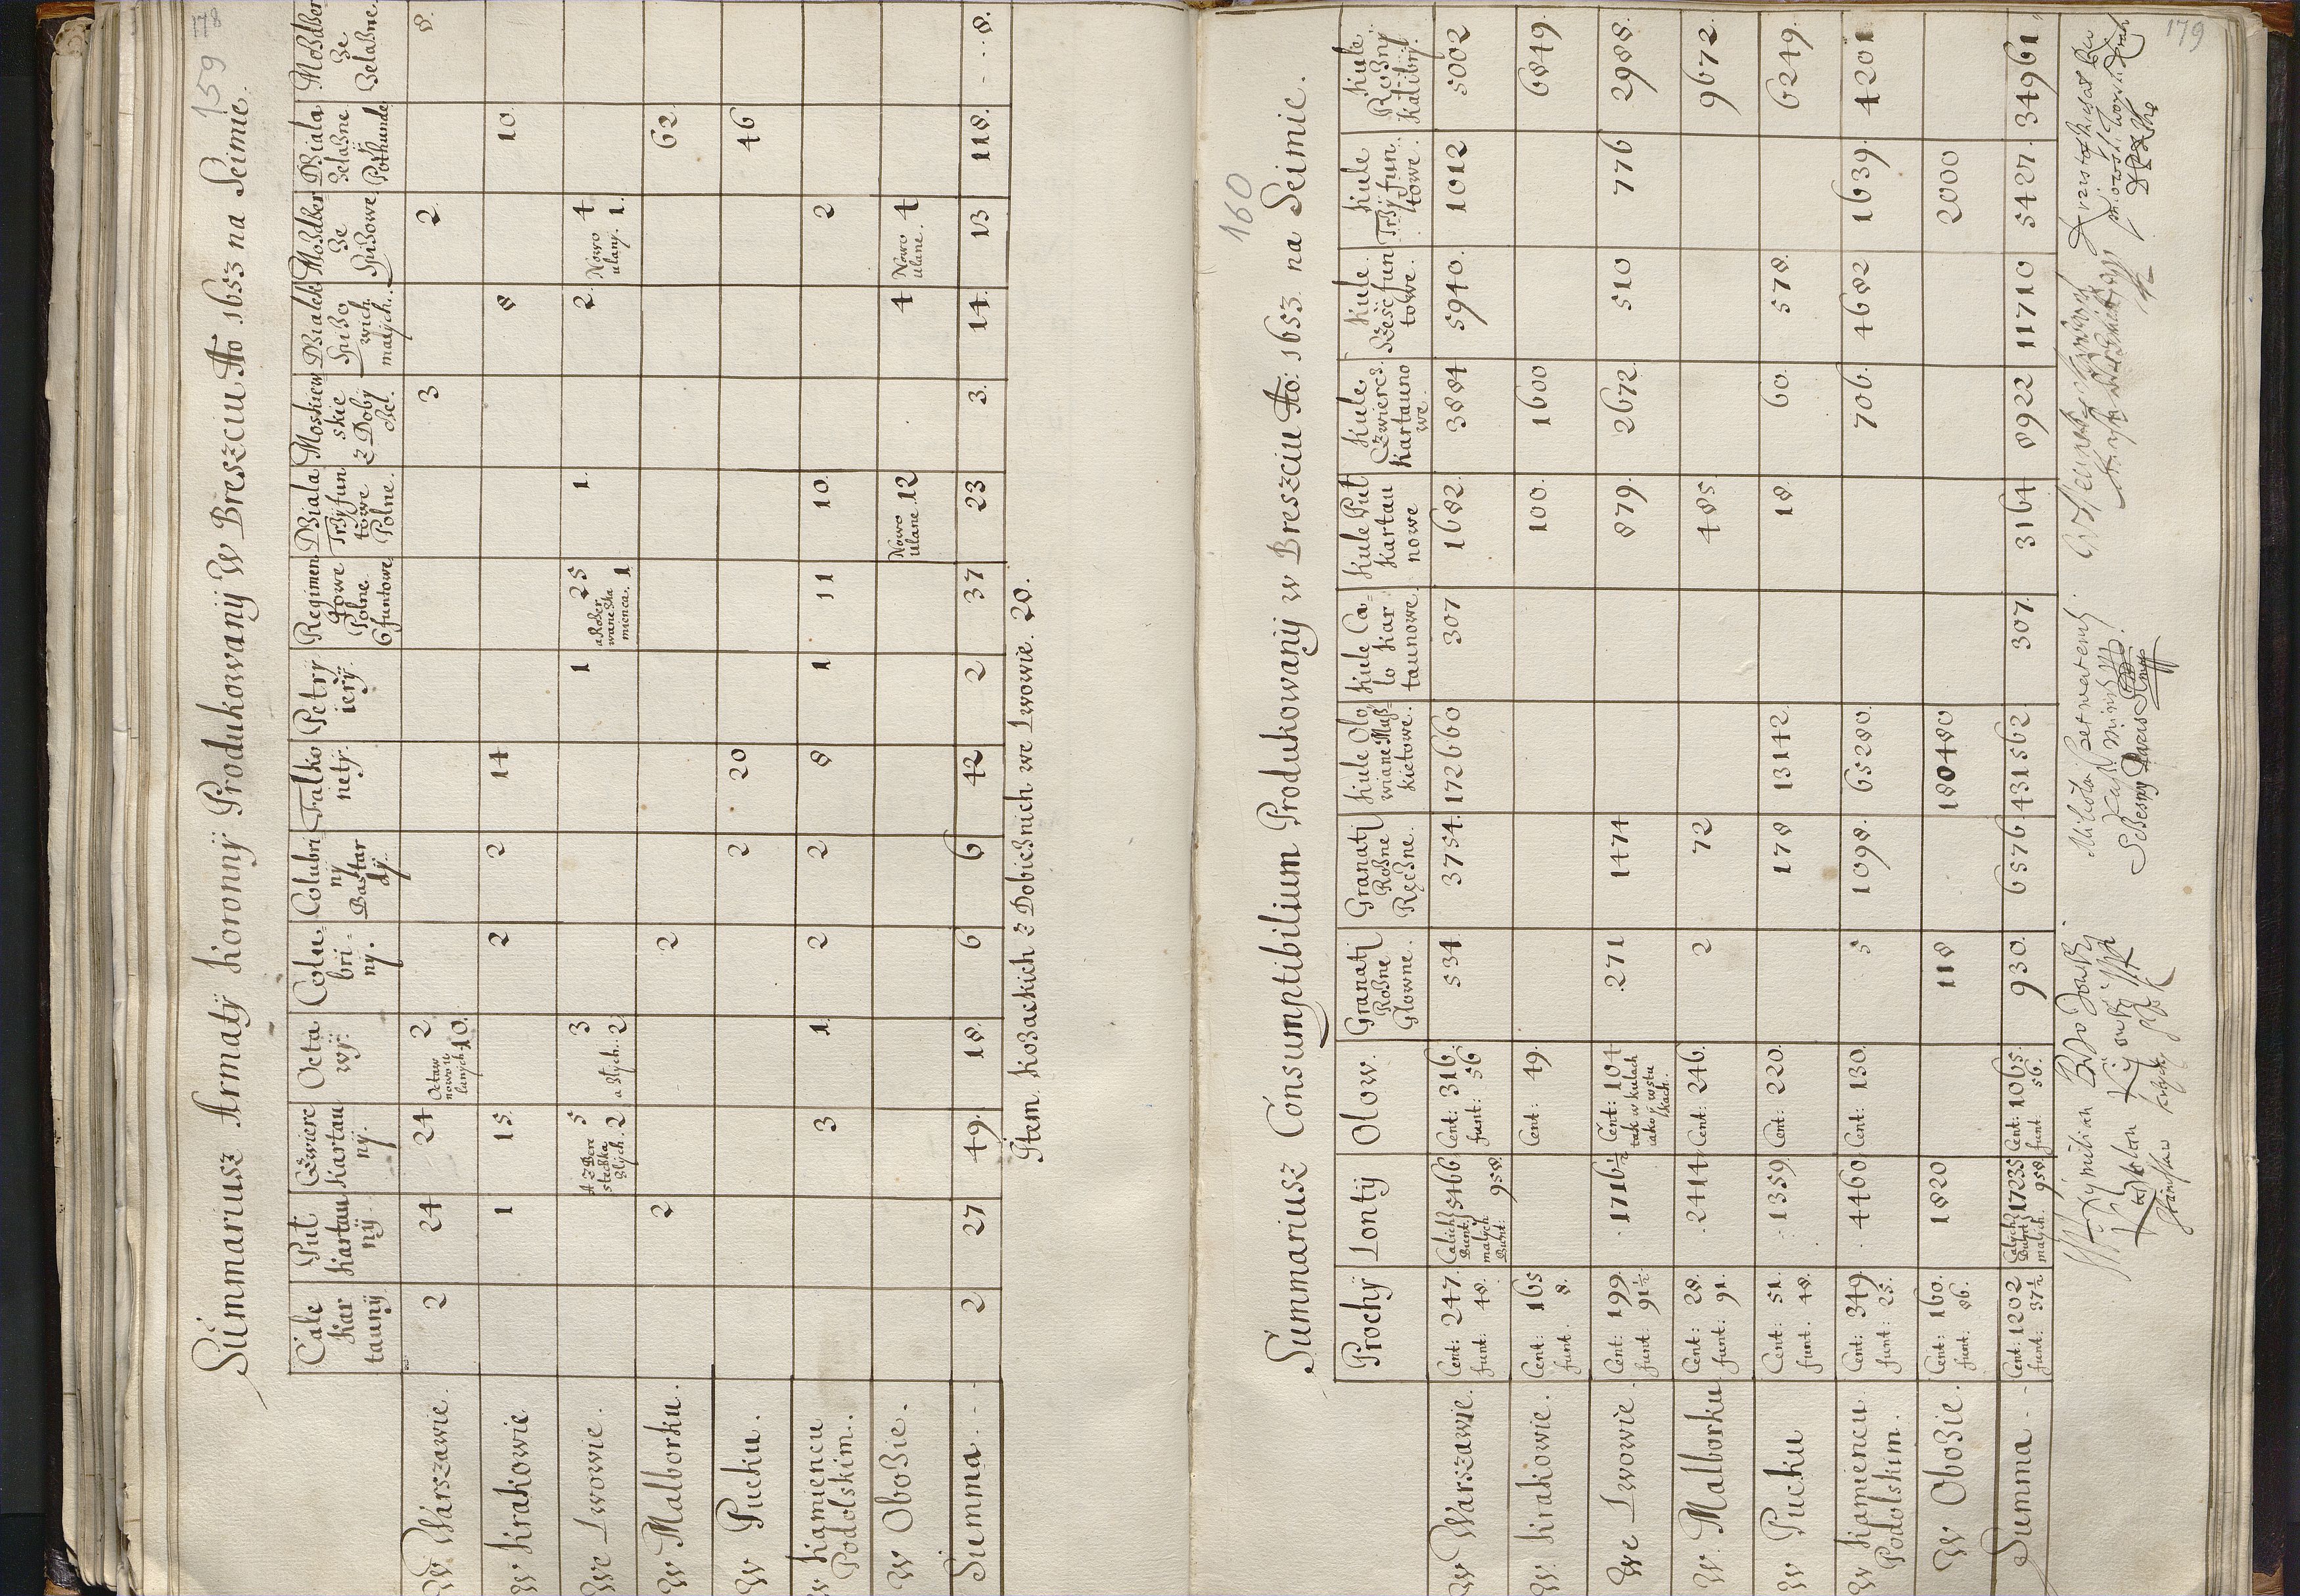 159
Summariusz Armatÿ Koronnÿ Produkowanÿ W Breszciu Aō 1653 na Seimie.
Całe Kar taunÿ | Puł Kartau nÿ. | Czwierc Kartau nÿ. | Octa wÿ. | Colu= bri= ny. | Colubri ny Bastar dÿ. | Falko netÿ. | Petrÿ ierÿ. | Regimen towe Polne 6 funtowe | Działa Trzÿ fun towe Polne. | Moskiew skie z Dobÿ zeł. | Działek Spiżo wich małÿch. | Możdżer ze Spiżowe | Działa żelażne Połhunde | Możdżer ze żelażne
W Warszawie. 2 24 24 2 Octaw nowo u lanÿch. 10. 3 2. 8.
W Krakowie 1 15. 2 2 14 8 10.
We Lwowie. 5 A z Bere steczka złÿch. 2 3 a złÿch. 2 1 25 a Rozer waneß Ka mienca. 1 1. 2. 4 Nowo ulanÿ. 1.
W Malborku. 2 2 62.
W Pucku. 2 20 46
W Kamiencu Podolskim. 3 1 2 2 8 1 11 10. 2
W Obozie. Nowo ulane. 12 4 Nowo ulane. 4
Summa. 2 27 49. 18. 6 6 42 2 37 23 3. 14. 13 118. 8.
Item. Kozackich z Dobicznich we Lwowie. 20.
160
179
Summariusz Consumptibilium Produkowanÿ w Breszciu Aō: 1653. na Seimie.
Prochÿ | Lontÿ | Ołow. | Granatÿ Rożne Głowne. | Granatÿ Rożne Ręczne. | Kule Oło wiane Muß= kietowe. | Kule Ca= ło Kar taunowe. | Kule Puł kartau nowe | Kule. Czwierc. Kartauno we. | Kule. Sześć fun towe. | Kule Trzÿ fun. towe. | Kule. Rożnÿ Kalibrÿ.
W Warszawie. Cent: 247. funt: 48. Całich Bunt: 5466 małÿch Bunt: 958. Cent: 316. funt: 56 534. 3754. 172660 307 1682. 3884 5940. 1012 5002
W. Krakowie. Cent: 165 funt. 8. Cent: 49. 100. 1600 6849.
We Lwowie. Cent: 199. funt: 91½. 1716½ Cent: 104 tak w kulach iako ÿ w stu kach. 271 1474 879. 2672. 510 776 2988.
W. Malborku Cent: 28. funt: 91. 2414 Cent: 246. 2 72 485. 9672.
W Pucku Cent: 51. funt. 48. 1359. Cent: 220. 178 13142. 18. 60. 578. 6249.
W Kamiencu Podolskim. Cent: 349. funt: 25. 4460 Cent: 130. 5 1098. 65280. 706. 4682 1639. 4201.
W Obozie. Cent: 160. funt. 86. 1820 118 180480 2000
Summa Cent: 1202 funt: 37½. Całÿch Bunt: 17235 małÿch. 958. Cent: 1065. funt 56. 930. 6576. 431562. 307. 3164 8922 11710 5427. 34961.